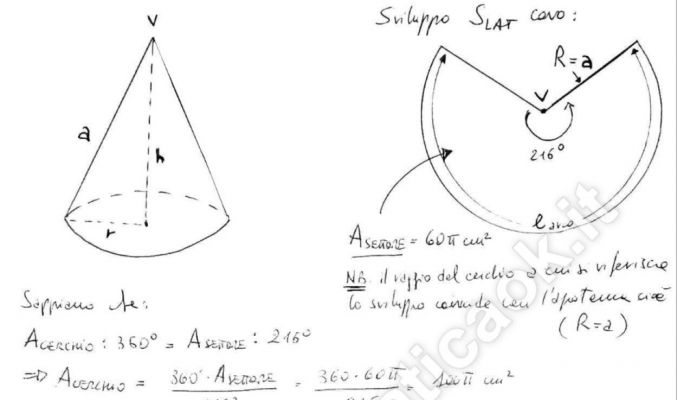 V
a
h
r
Sviluppo SLAT cono:
R=a
V
216°
l arco
ASETTORE = 60π cm²
NB. il raggio del cerchio a cui si riferisce
lo sviluppo coincide con l'apotema cioè
(R=a)
Sappiamo che:
ACERCHIO : 360° = ASETTORE : 216°
⇒ ACERCHIO = 360°·ASETTORE / 216° = 360·60π / 216 = 100π cm²
aticaok.it